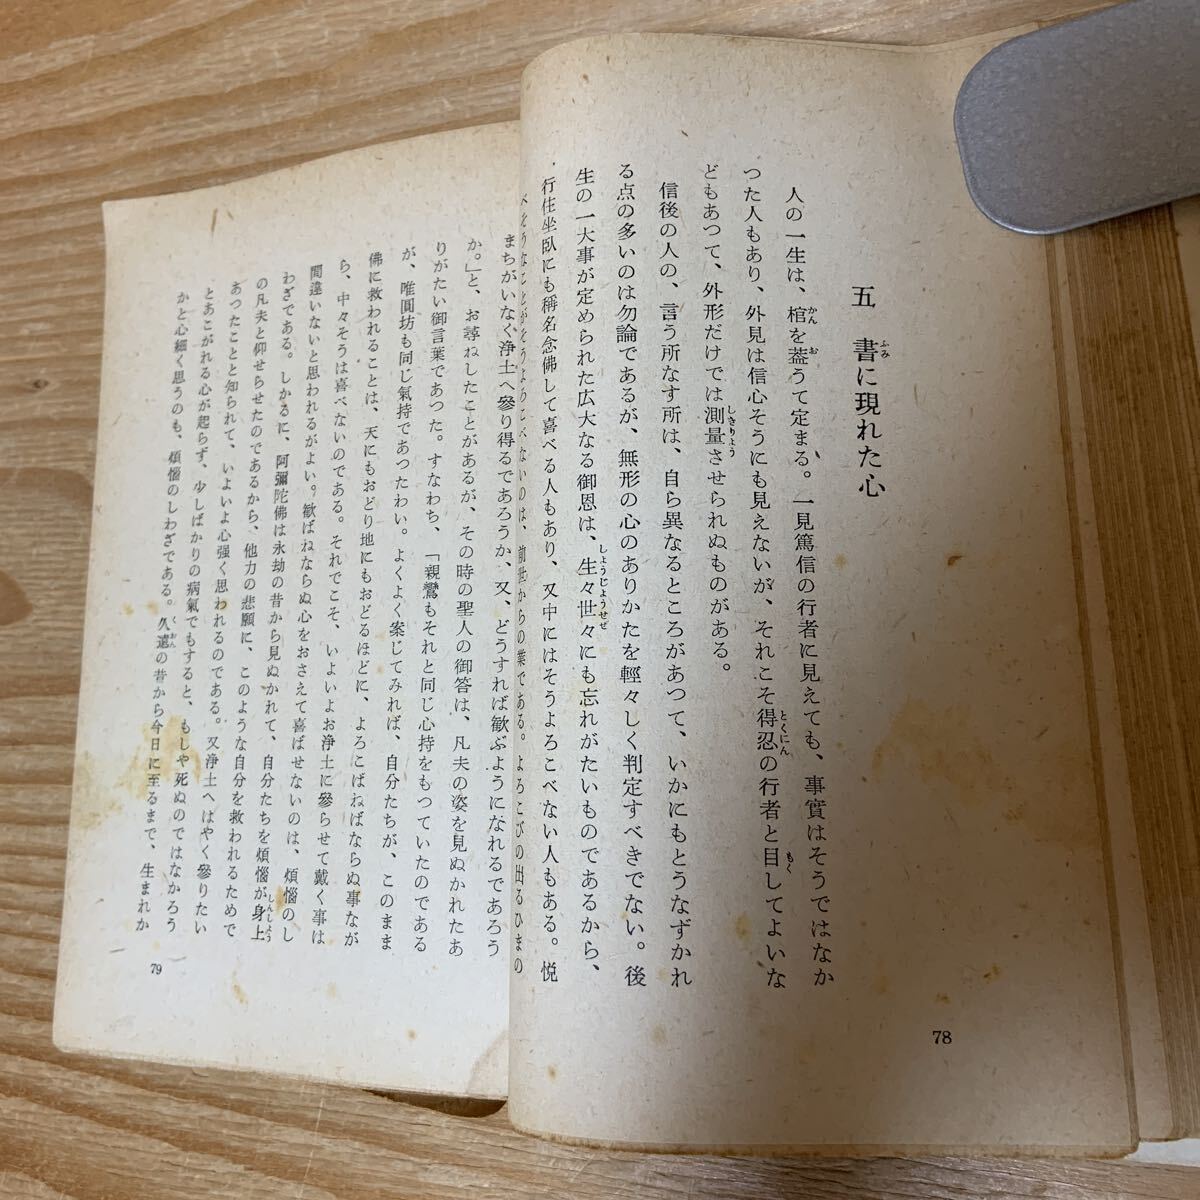 五　書に現れた心
ふみ
人の一生は、棺を蓋うて定まる。一見篤信の行者に見えても、事實はそうではなか
かん
お
つた人もあり、外見は信心そうにも見えないが、それこそ得忍の行者と目してよいな
とくにん
もく
どもあつて、外形だけでは測量させられぬものがある。
しきりよう
信後の人の、言う所なす所は、自ら異なるところがあつて、いかにもとうなずかれ
る点の多いのは勿論であるが、無形の心のありかたを輕々しく判定すべきでない。後
生の一大事が定められた広大なる御恩は、生々世々にも忘れがたいものであるから、
しようじようせぜ
行住坐臥にも稱名念佛して喜べる人もあり、又中にはそうよろこべない人もある。悦
78
べそうなことがそうよろこべないのは、前世からの業である。よろこびの出るひまの
まちがいなく浄土へ參り得るであろうか、又、どうすれば歓ぶようになれるであろう
か。」と、お尋ねしたことがあるが、その時の聖人の御答は、凡夫の姿を見ぬかれたあ
りがたい御言葉であつた。すなわち、「親鸞もそれと同じ心持をもつていたのである
が、唯圓坊も同じ氣持であつたわい。よくよく案じてみれば、自分たちが、このまま
佛に救われることは、天にもおどり地にもおどるほどに、よろこばねばならぬ事なが
ら、中々そうは喜べないのである。それでこそ、いよいよお浄土に參らせて戴く事は
間違いないと思われるがよい。歓ばねならぬ心をおさえて喜ばせないのは、煩惱のし
わざである。しかるに、阿彌陀佛は永劫の昔から見ぬかれて、自分たちを煩惱が身上
しんしよう
の凡夫と仰せらせたのであるから、他力の悲願に、このような自分を救われるためで
あつたことと知られて、いよいよ心强く思われるのである。又浄土へはやく參りたい
とあこがれる心が起らず、少しばかりの病氣でもすると、もしや死ぬのではなかろう
かと心細く思うのも、煩惱のしわざである。久遠の昔から今日に至るまで、生まれか
くおん
79